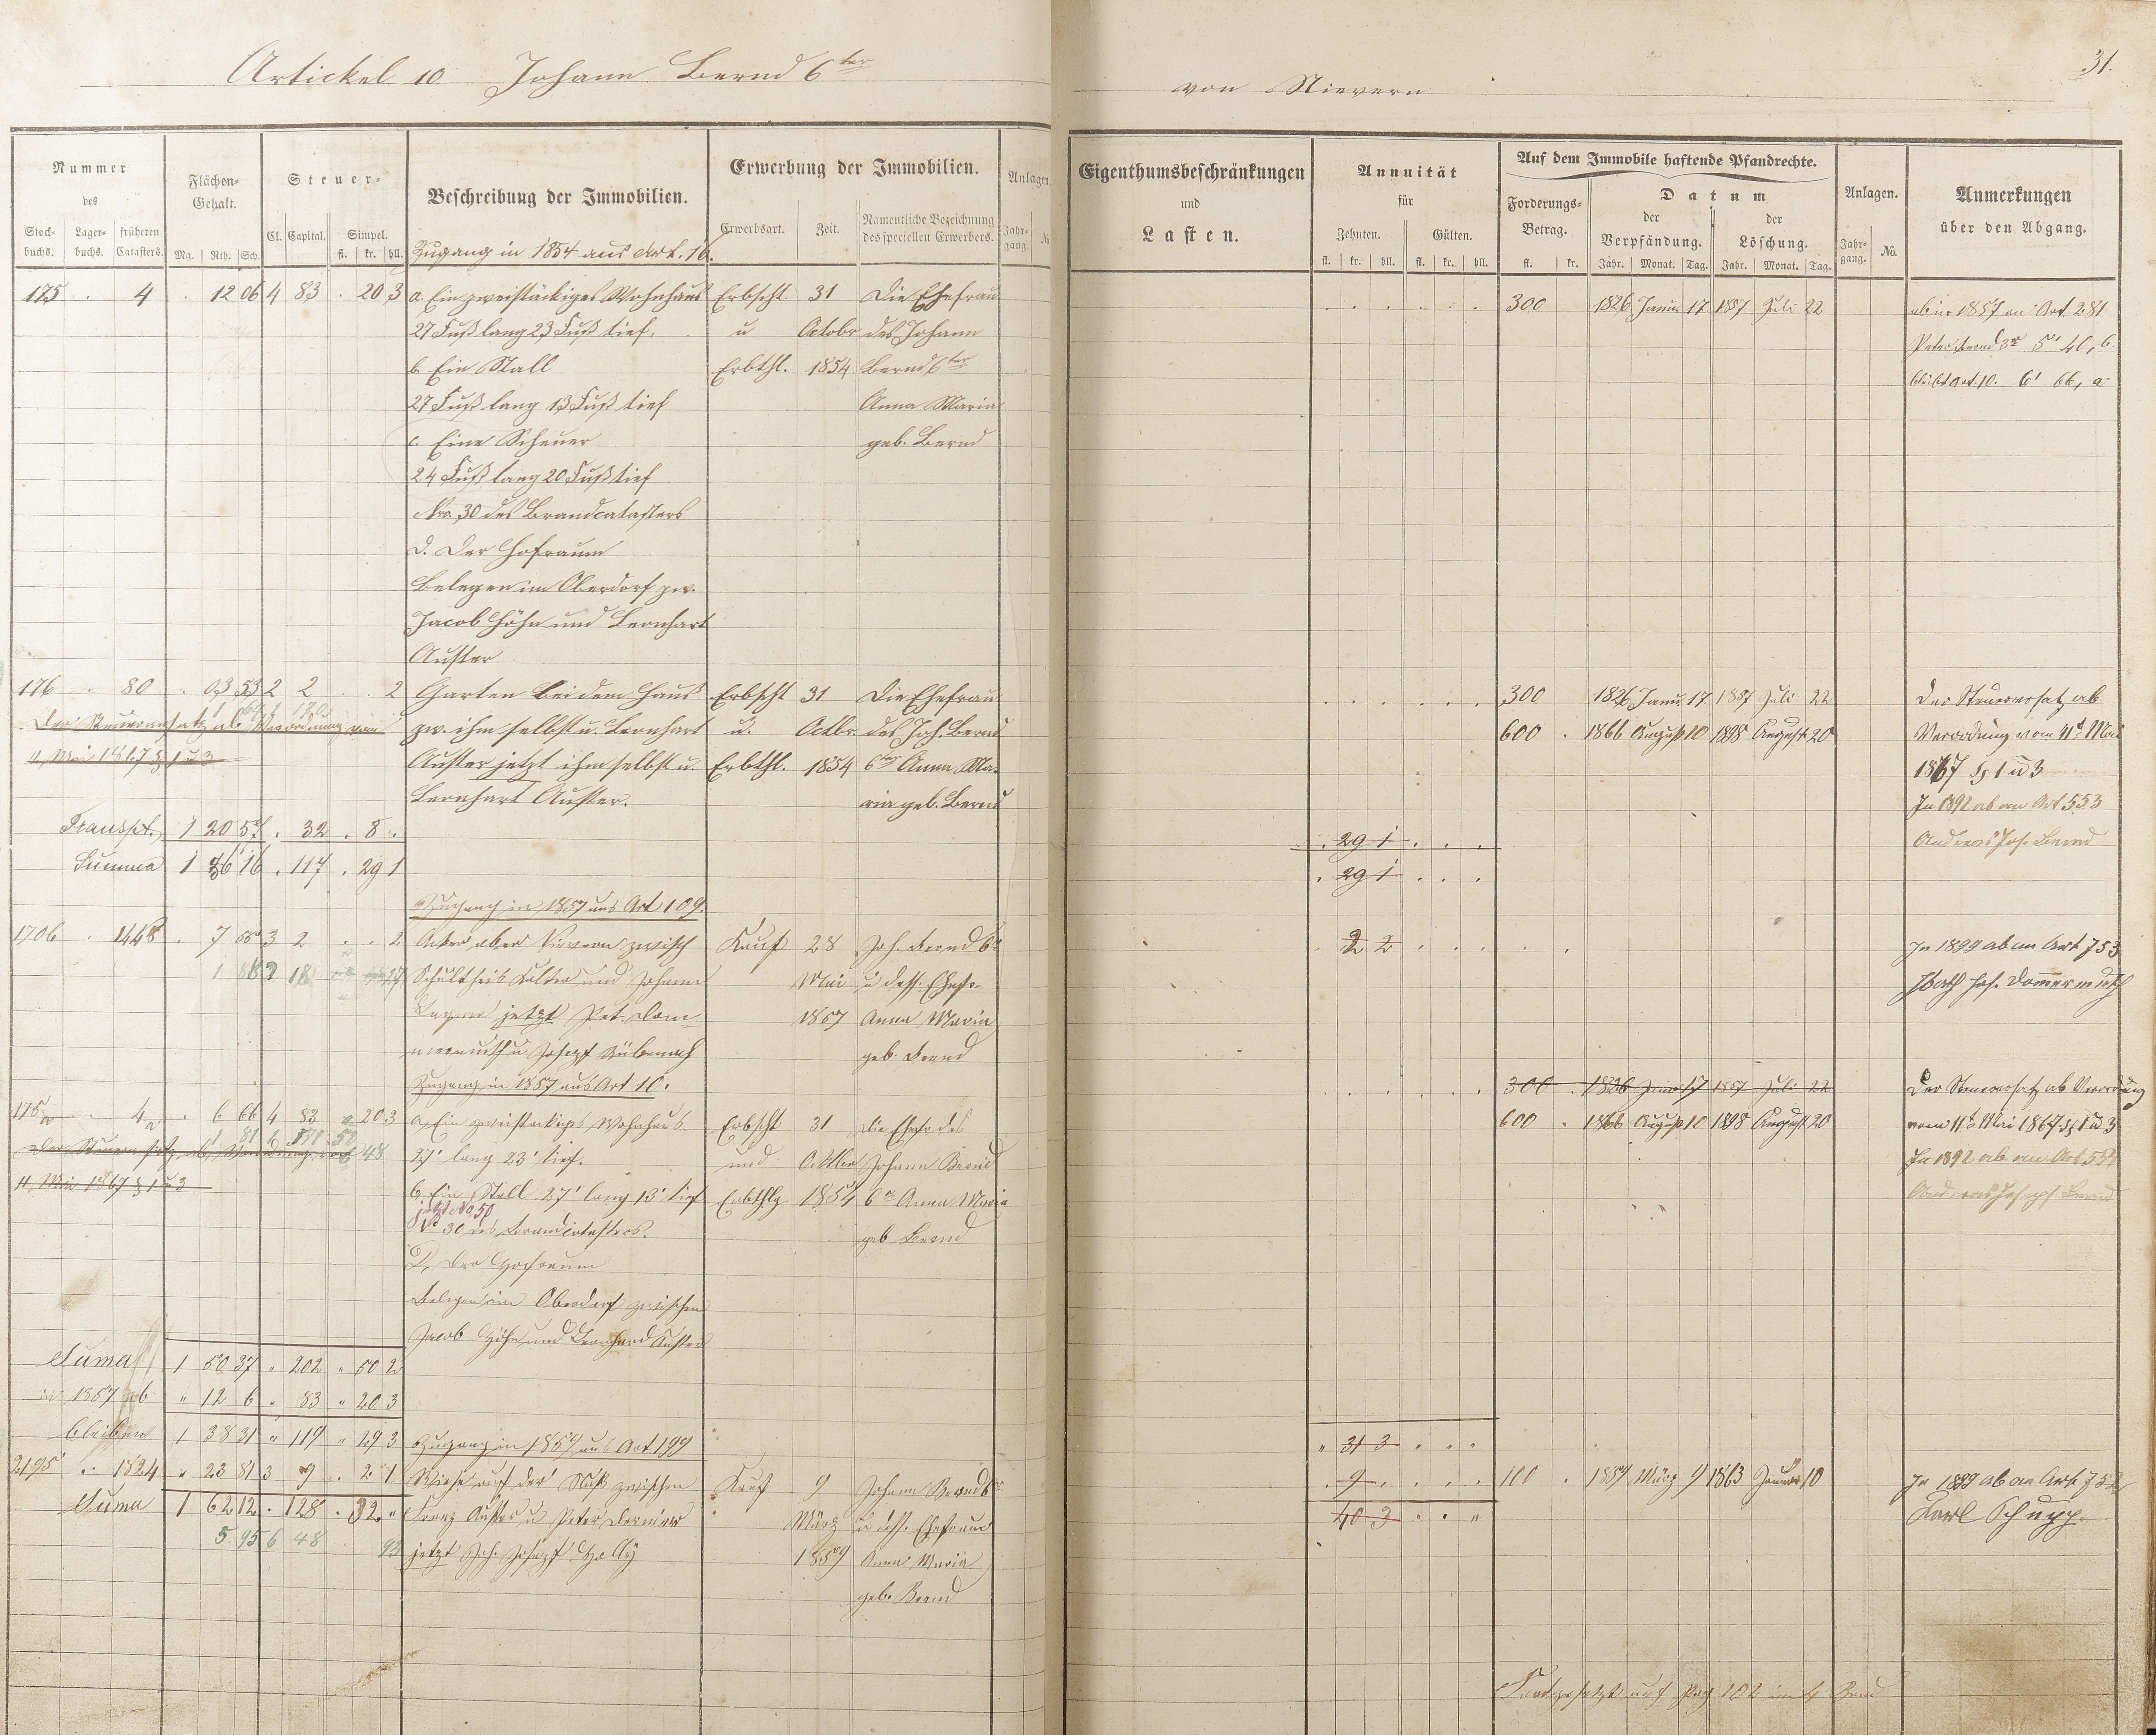 Artickel 10 Johann Bernd 6ter
von Nievern
31.
Nummer
des
Stock-
buchs.
Lager-
buchs.
früheren
Catasters.
Flächen-
Gehalt.
Mg. Rth. Sch.
Steuer-
Cl. Capital. Simpel.
fl. kr. hll.
Beschreibung der Immobilien.
Erwerbung der Immobilien.
Erwerbsart. Zeit. Namentliche Bezeichnung
des speciellen Erwerbers.
Anlagen.
Jahr-
gang.
Eigenthumsbeschränkungen
und
Lasten.
Annuität
für
Zehnten. Gülten.
fl. kr. hll. fl. kr. hll.
Auf dem Immobile haftende Pfandrechte.
Forderungs-
Betrag.
fl. kr.
Datum
der
Verpfändung.
der
Löschung.
Jahr. Monat. Tag. Jahr. Monat. Tag.
Anlagen.
Jahr-
gang. No.
Anmerkungen
über den Abgang.
Zugang in 1854 aus Art. 16.
175 . 4 . 12 06 4 83 . 20 3 a. Ein zweistöckiges Wohnhaus Erbscht. 31 Die Ehefrau
27 Fuß lang 23 Fuß tief. u Octobr des Johann
b. Ein Stall Erbthl. 1854 Bernd 6ter
27 Fuß lang 13 Fuß tief Anna Maria
c. Eine Scheuer geb. Bernd
24 Fuß lang 20 Fuß tief
Nro. 30 des Brandcatasters
d. Der Hofraum
Belegen im Oberdorf zw.
Jacob Höhn und Leonhart
Auster
300 1826 Janur. 17 1857 Juli 22
ab in 1857 an Art 281
Peter Bernd 3r 5' 40, b
bleibt Art. 10. 6' 66, a
176 . 80 . 03 53 2 2 . . 2 Garten bei dem Haus Erbscht 31 Die Ehefrau
Der Steuersatz ab Verordnung vom zw. ihm selbst u. Leonhart u. Octbr. des Joh. Bernd
11 Mai 1867 § 1 u 3 Auster jetzt ihm selbst u. Erbthl. 1854 6ter Anna Ma-
Leonhart Auster. ria geb. Bernd
300 1826 Janu. 17 1857 Juli 22
600 . 1866 August 10 1898 August 20
Der Steuersatz ab
Verordnung vom 11t. Mai
1867 § 1 u 3
In 1892 ab an Art 553
Andreas Jos. Bernd
Transpt. 1 20 57 . 32 . 8 .
Summa 1 36 16 . 117 . 29 1
. 29 1 . . .
. 29 1 . . .
Zugang in 1857 aus Art 109.
1706 . 1448 . 7 55 3 2 . . 2 Acker ober Nievern zwisch Kauf 28 Joh. Bernd 6r
Schultheis Kalter und Johann Mai u dess. Ehefr.
jetzt Pet. Dom- 1857 Anna Maria
mermuth u Joseph Kübenach geb. Bernd
. 2 2 . . . . .
In 1899 ab an Art 753
Jos. Dommermuth
Zugang in 1857 aus Art 10.
175a 4a . 6 66 4 83 . 20 3 a, Ein zweistöckiges Wohnhaus Erbscht 31 Die Ehefr des
Der Steuersatz ab, Verordnung vom 27' lang 23' tief. und Octber Johann Bernd
11 Mai 1867 § 1 u 3 b, Ein Stall 27' lang 13' tief Erbthlg 1854 6r Anna Maria
jetzt No. 50
No 30 des Brandcatasters. geb Bernd
D, Der Hofraum
Belegen im Oberdorf zwischen
Jacob Höhn und Leonhard Auster
300 . 1826 Januar 17 1857 Juli 22
600 . 1866 August 10 1898 August 20
Der Steuersatz ab Verordnung
vom 11t Mai 1867 § 1 u 3
In 1892 ab an Art 553
Andreas Joseph Bernd
Suma 1 50 37 " 202 " 50 2
in 1857 ab " 12 6 " 83 " 20 3
bleiben 1 38 31 " 119 " 29 3 Zugang in 1859 aus Art 199
" 31 3 " " "
2195 . 1824 " 23 81 3 9 . 2 1 Wiese auf der zwischen Kauf 9 Johann Bernd 6r
Suma 1 62 12 . 128 . 32 " Franz Auster u Peter März u dess. Ehefrau
5 95 6 48 93 jetzt Joh. Joseph 1859 Anna Maria
geb. Bernd
. 9 . . . . 100 . 1859 März 9 1863 Januar 10
40 3 " " "
In 1899 ab an Art 752
Karl Schupp.
Fortgesetzt auf Pag 202 im 4 Band